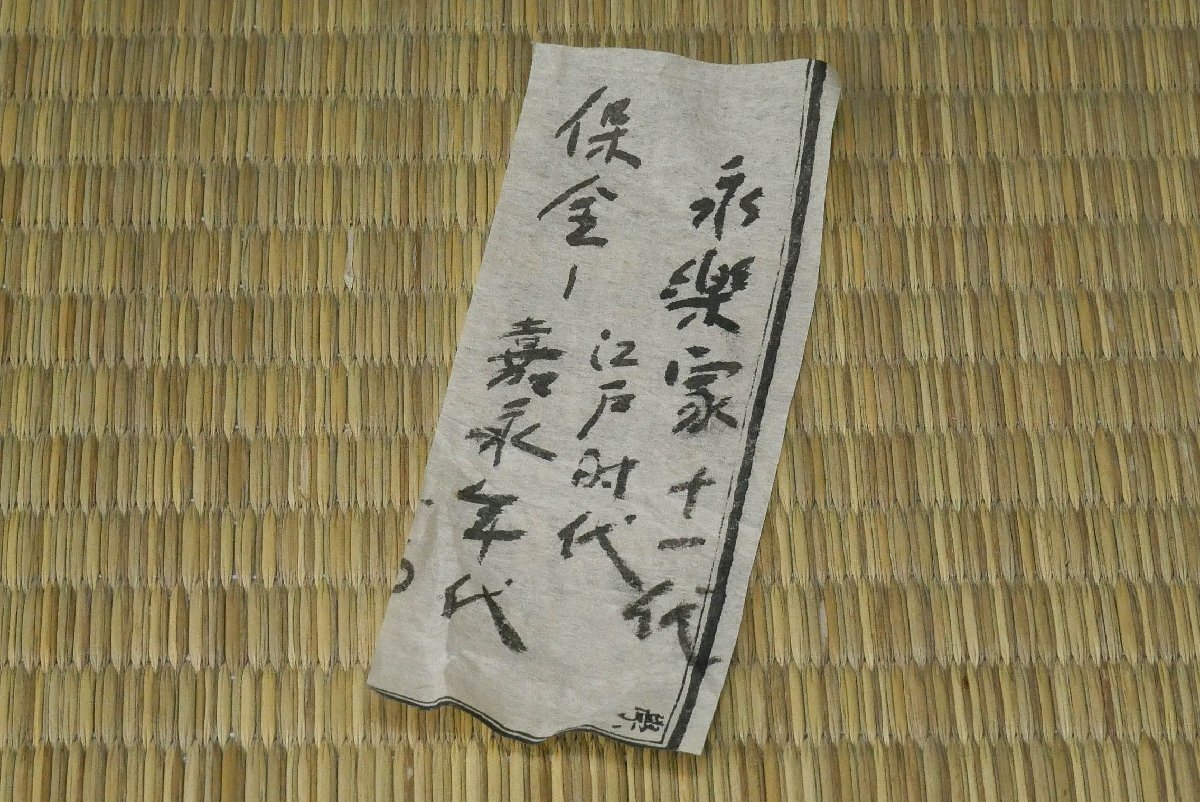 永樂家十一代
保全ー
江戸时代
嘉永年代